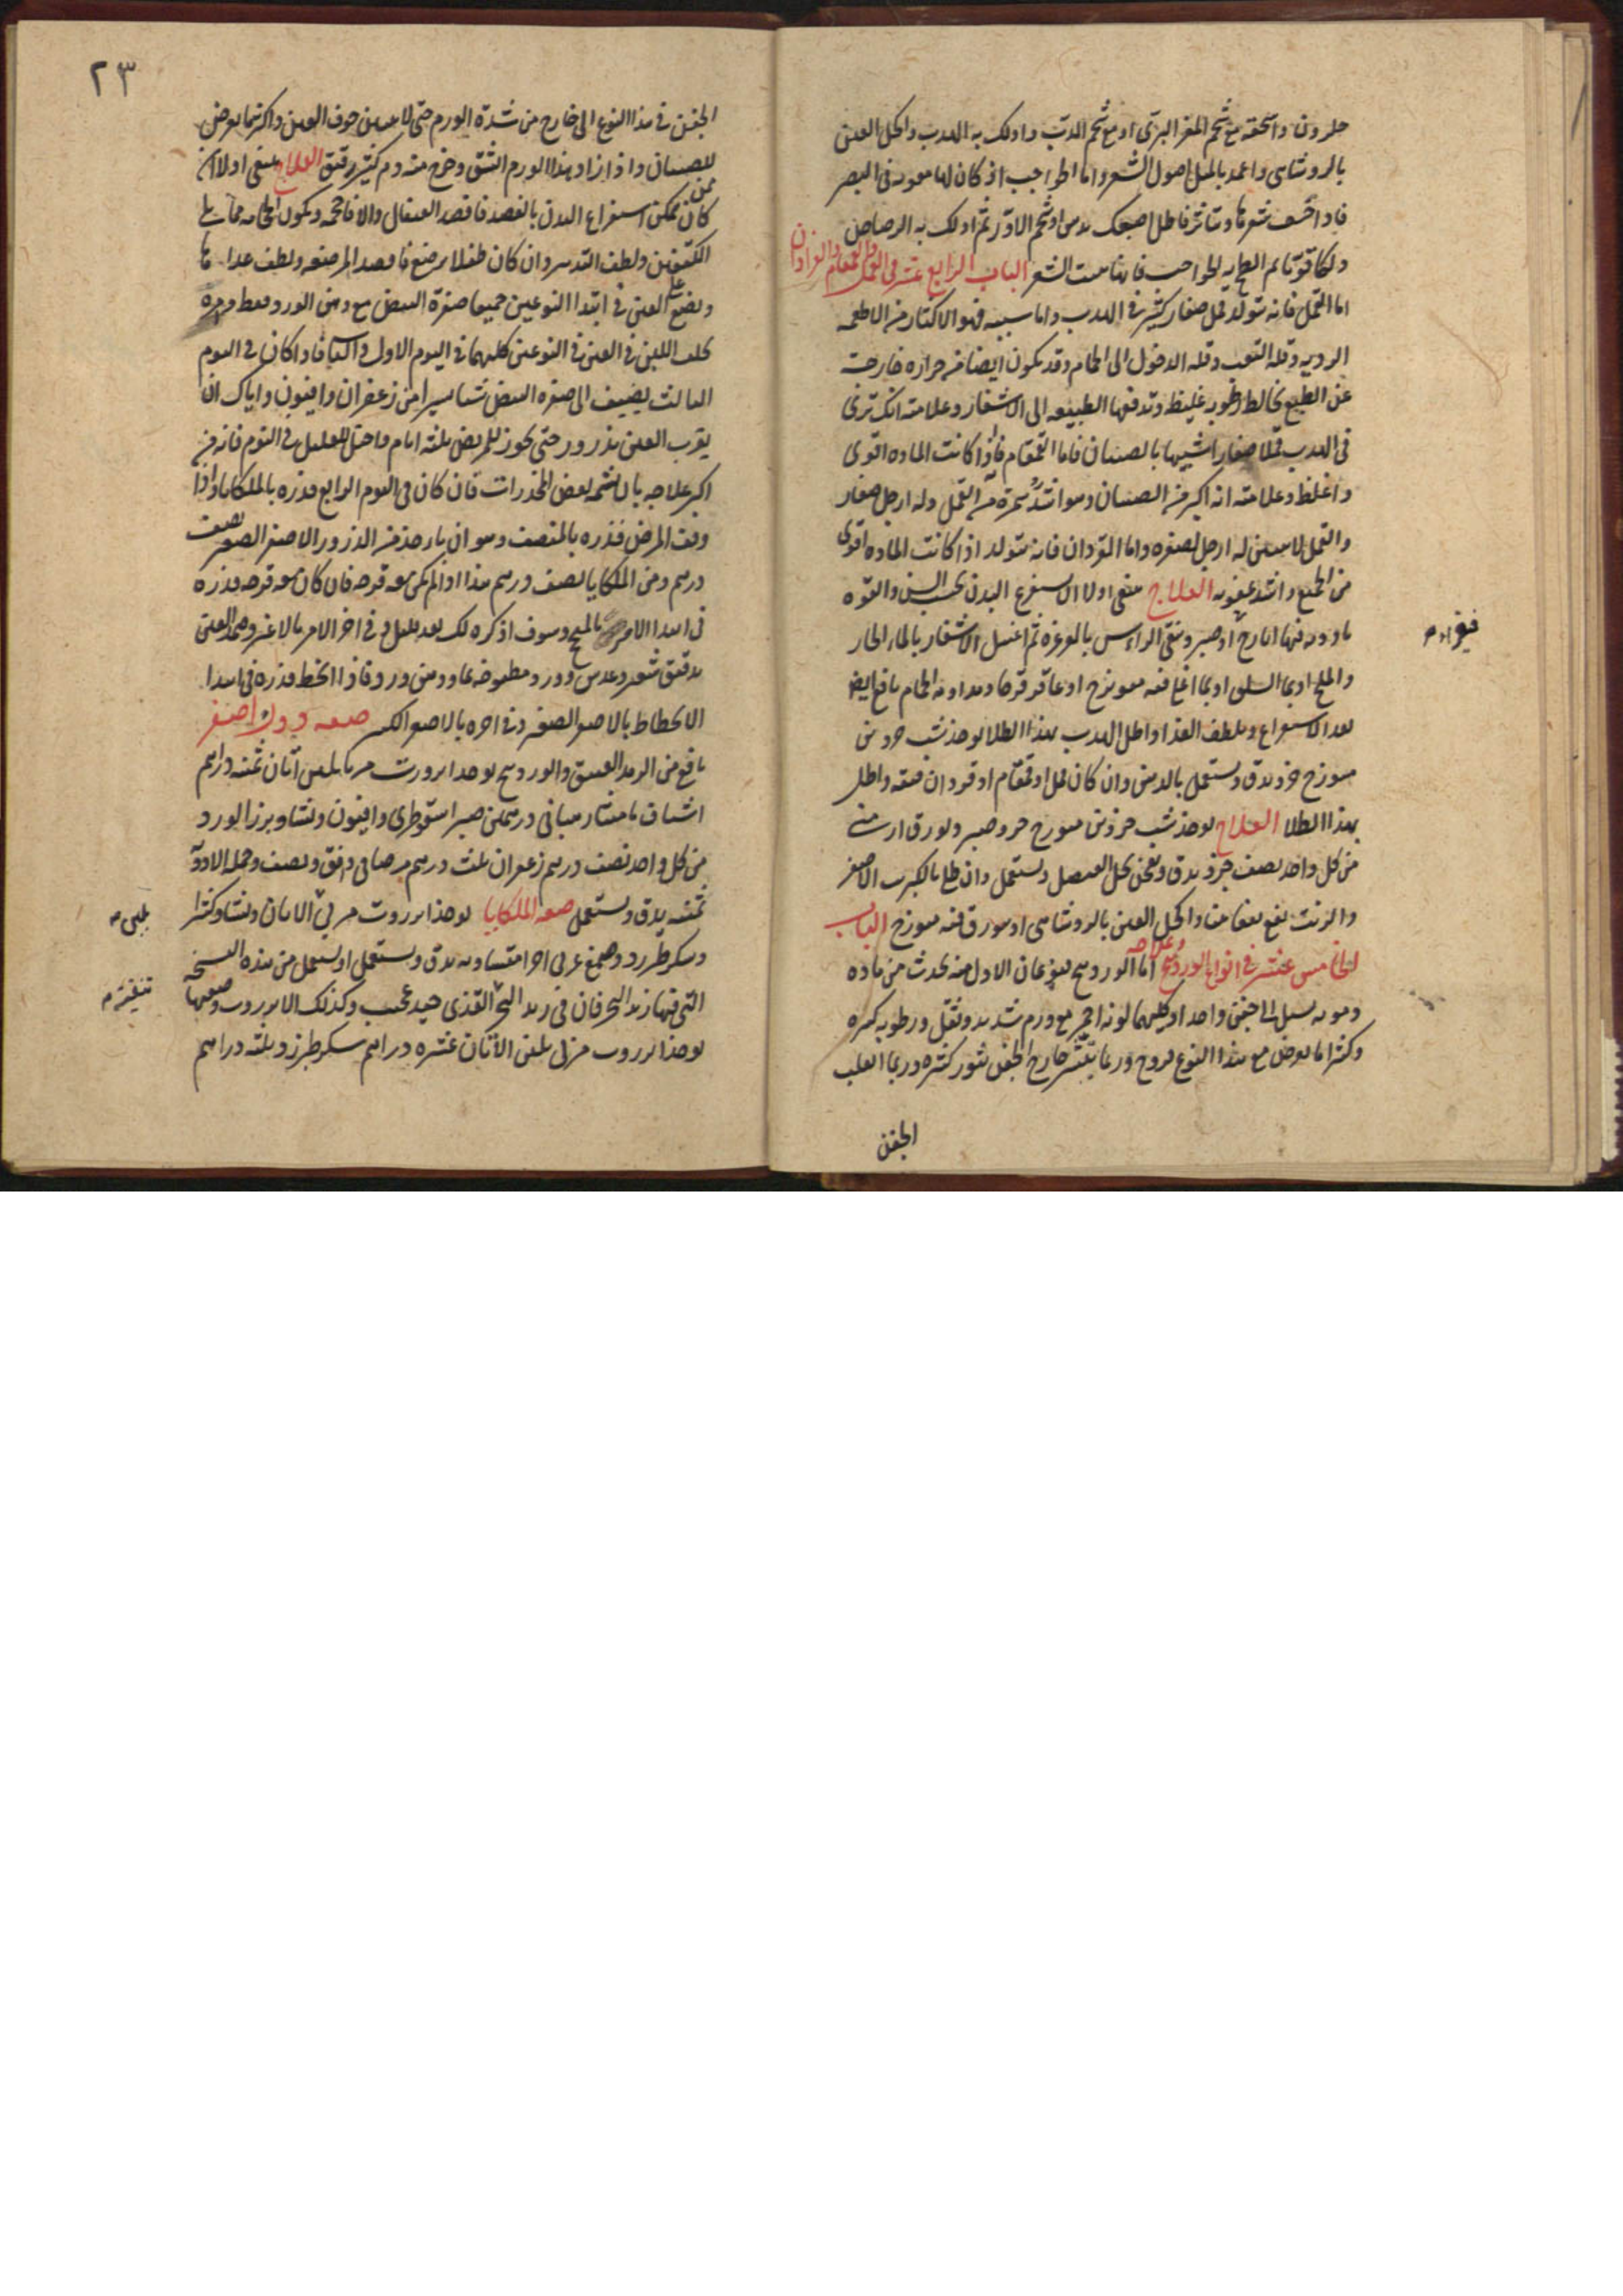 حلزون واسحقه مع شحم المعز البري او مع شحم الدب وادلك به الهدب واكحل العين
بالروشناى واعمد بالميل اصول الشعر واما الحواجب اذ كان لها معونه فى البصر
فاذا شعرها وتناثر فاطل اصبعك بدهن او شحم الاوز ثم ادلك به الرصاص
الحواجب فانها تنبت الشعر الباب الرابع عشر فى القمل والقمقام والقردان
اما القمل فانه يتولد قمل صغار كثير فى الهدب واما سببه فهو الاكثار من الاطعمه
الرديه وقله التعب وقله الدخول الى الحمام وقد يكون ايضا من حراره خارجة
عن الطبع تخالط رطوبه غليظه وتدفعها الطبيعه الى الاشفار وعلامته انك ترى
فى الهدب قملا صغارا شبيها بالصئبان فاما القمقام فاذا كانت الماده اقوى
واغلظ وعلامته انه اكبر من الصئبان وهو اشد سمرة من القمل وله ارجل صغار
والقمل لا يتبين له ارجل لصغره واما القردان فانه يتولد اذا كانت الماده اقوى
من الجميع واشد عفونه العلاج ينبغى اولا ان تستفرغ البدن بحسب السن والقوه
فيقرا م
بادويه فيها ايارج او صبر ونقى الراس بالغرغره ثم اغسل الاشفار بالماء الحار
والملح او بماء السلق او بما اغلى فيه ميويزج او عاقرقرحا ومداومه الحمام نافع ايضا
بعد الاستفراغ وتلطف الغذا واطل الهدب بهذا الطلا يوخذ شب جزوين
ميويزج جزو يدق ويستعمل بالدهن وان كان قمل او قمقام او قردان فنقه واطل
بهذا الطلا العلاج يوخذ شب جزوين ميويزج جزو صبر وبورق ارمنى
من كل واحد نصف جزو يدق ويعجن بخل العنصل ويستعمل وان طلى بالكبريت الاصفر
والزيت نفع نفعا بينا واكحل العين بالروشناى او ميويزج الباب
الخامس عشر فى انواع الوردينج وعلاجه اما الوردينج فنوعان الاول منه يحدث من ماده
دمويه تسيل الى جفن واحد او كليهما لونه احمر مع ورم شديد وثقل ورطوبه كثيره
وكثيرا ما يعرض مع هذا النوع قروح وربما بثر خارج الجفن بثور كثيره وربما انقلب
الجفن
٢٣
الجفن فى هذا النوع الى خارج من شدة الورم حتى لا يتبين جوف العين واكثر ما يعرض
للصبيان واذا زاد هذا الورم انشق وخرج منه دم كثير رقيق العلاج ينبغى اولا ان
كان ممن يمكن استفراغ البدن بالفصد فافصد القيفال والا فاحجمه وتكون الحجامه مما يلى
الكتفين ولطف التدبير وان كان طفلا يرضع فافصد المرضعه ولطف غذاها
وضع على العين فى ابتدا النوعين جميعا صفرة البيض مع دهن الورد وقطر
اللبن فى العين فى النوعين كليهما فى اليوم الاول فاذا كان فى اليوم
الثالث يضيف الى صفره البيض شيئا يسيرا من زعفران وافيون واياك ان
تقرب العين بذرور حتى يجوز للمريض ثلثه ايام واحتل للعليل فى النوم فانه من
اكبر علاجه بان يشمه بعض المخدرات فان كان فى اليوم الرابع فذره بالملكايا
فذره بالمنصف وهو ان ياخذ من الذرور الاصفر الصغير نصف
درهم ومن الملكايا نصف درهم هذا اذا لم تكن معه قرحه فان كان معه قرحه فذره
فى ابتدا الامر وسوف اذكره لك بعد قليل وفى اخر الامر بالاغبر وضمد العين
بدقيق شعير وعدس وورد مطبوخه بماء ودهن ورد فاذا انحط فذره فى ابتدا
الانحطاط بالاصفر الصغير وفى اخره بالاصفر الكبير صفه ذرور اصفر
نافع من الرمد العتيق والوردينج يوخذ انزروت مربا بلبن اتان ثمنيه دراهم
اشياف مامیثا درهمين صبر اسقوطرى وافيون ونشا وبزر الورد
من كل واحد نصف درهم زعفران ثلث درهم مر صافى
يدق ويستعمل صفه الملكايا يوخذ انزروت مربى بلبن الاتان ونشا وكثيرا
بلبن م
وسكر طبرزد وصمغ عربى اجزا متساويه يدق ويستعمل او يستعمل من هذه النسخه
التى فيها زبد البحر فان فى زبد البحر القذى جيد عجيب وكذلك الانزروت وصفتها
تنفيته م
يوخذ انزروت مربى بلبن الاتان عشره دراهم سكر طبرزد ثلثه دراهم